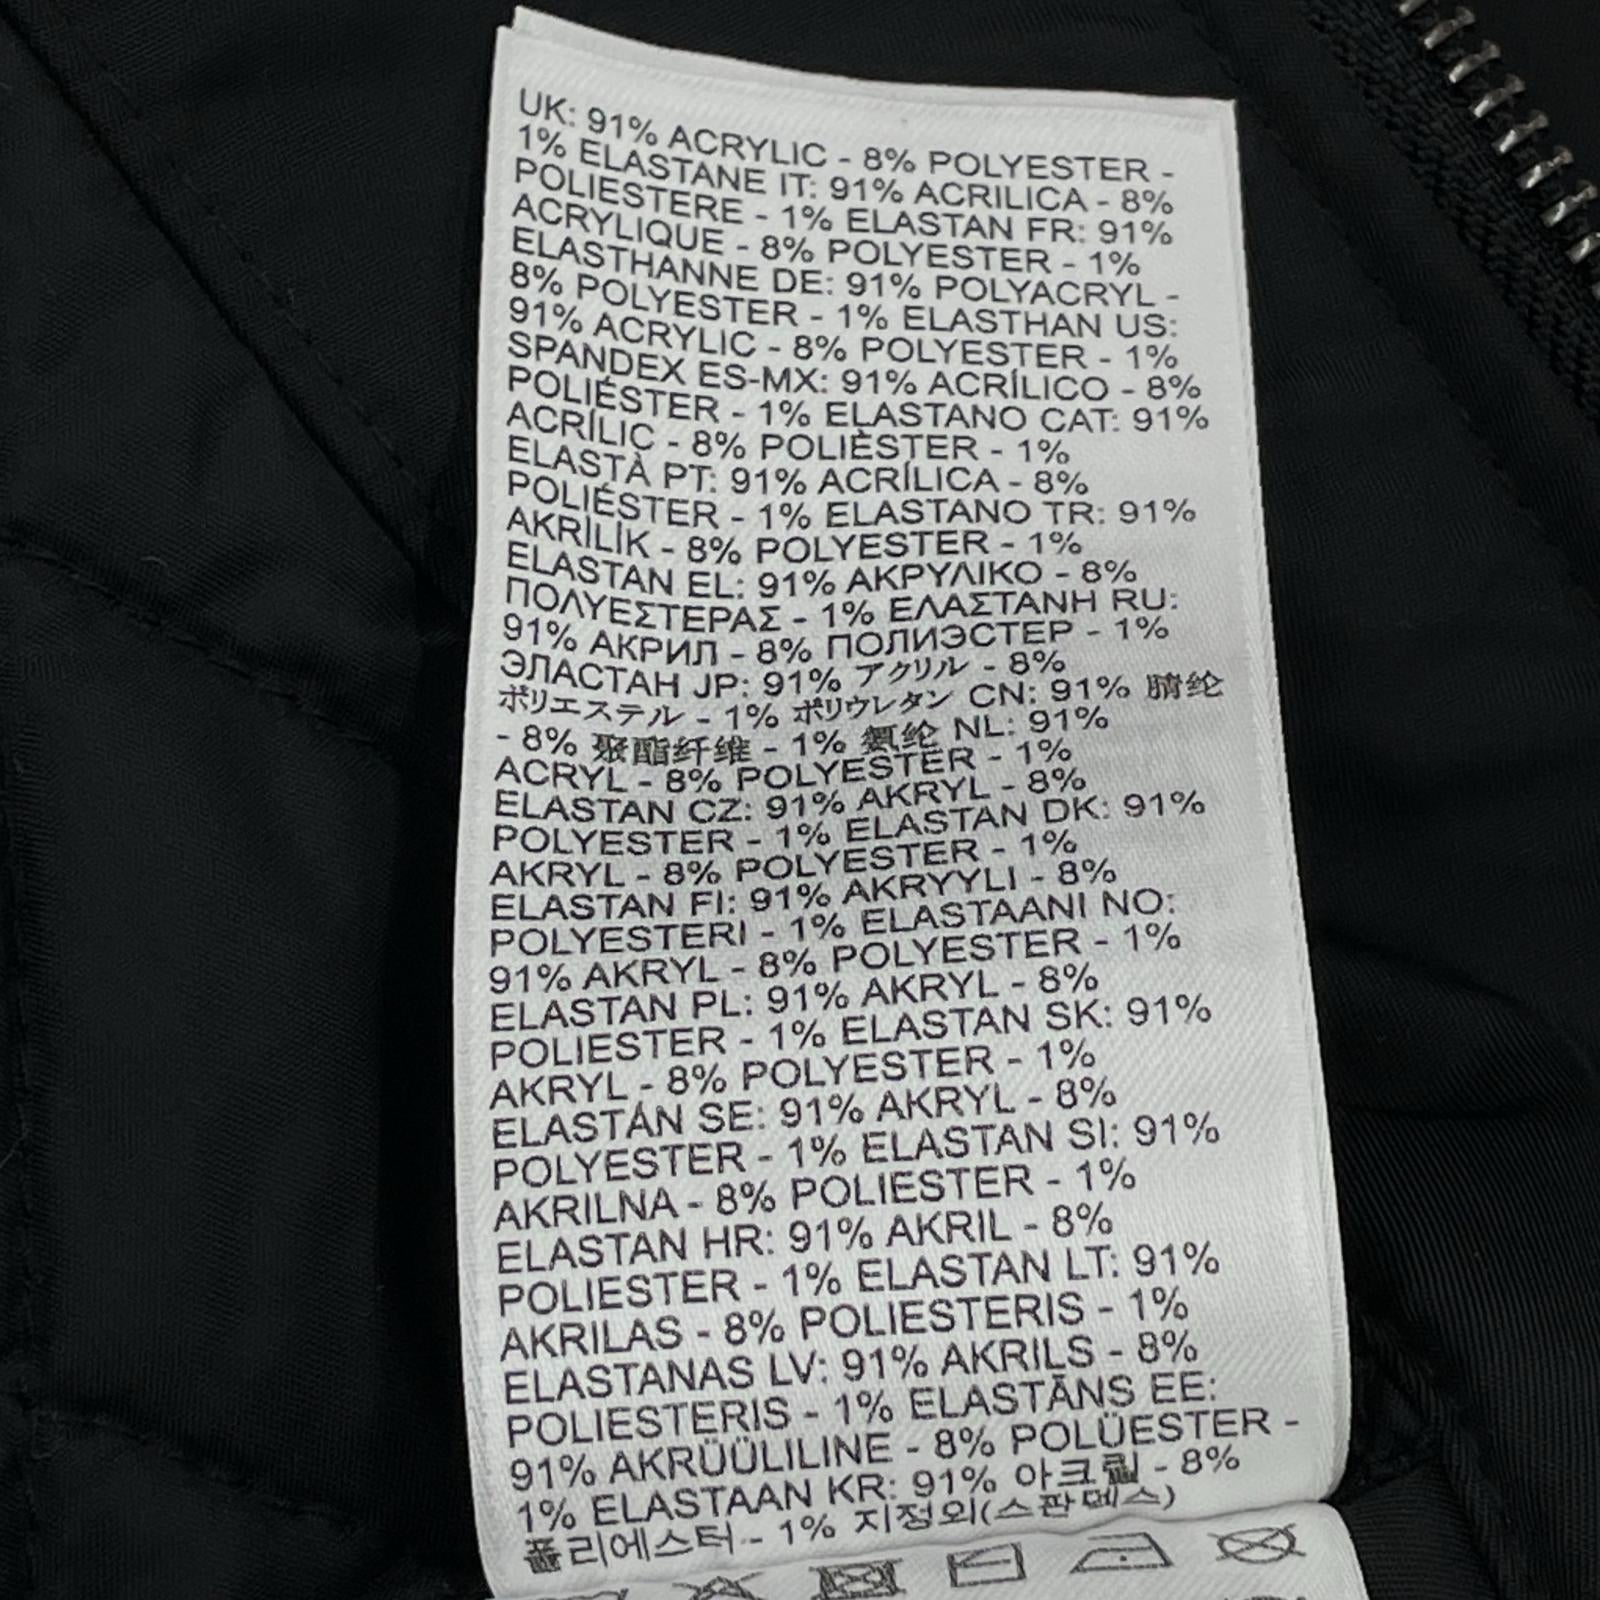 UK: 91% ACRYLIC - 8% POLYESTER -
1% ELASTANE IT: 91% ACRILICA - 8%
POLIESTERE - 1% ELASTAN FR: 91%
ACRYLIQUE - 8% POLYESTER - 1%
ELASTHANNE DE: 91% POLYACRYL -
8% POLYESTER - 1% ELASTHAN US:
91% ACRYLIC - 8% POLYESTER - 1%
SPANDEX ES-MX: 91% ACRÍLICO - 8%
POLIÉSTER - 1% ELASTANO CAT: 91%
ACRÍLIC - 8% POLIÈSTER - 1%
ELASTÀ PT: 91% ACRÍLICA - 8%
POLIÉSTER - 1% ELASTANO TR: 91%
AKRİLİK - 8% POLYESTER - 1%
ELASTAN EL: 91% ΑΚΡΥΛΙΚΟ - 8%
ΠΟΛΥΕΣΤΕΡΑΣ - 1% ΕΛΑΣΤΑΝΗ RU:
91% АКРИЛ - 8% ПОЛИЭСТЕР - 1%
ЭЛАСТАН JP: 91% アクリル - 8%
ポリエステル - 1% ポリウレタン CN: 91% 腈纶
- 8% 聚酯纤维 - 1% 氨纶 NL: 91%
ACRYL - 8% POLYESTER - 1%
ELASTAN CZ: 91% AKRYL - 8%
POLYESTER - 1% ELASTAN DK: 91%
AKRYL - 8% POLYESTER - 1%
ELASTAN FI: 91% AKRYYLI - 8%
POLYESTERI - 1% ELASTAANI NO:
91% AKRYL - 8% POLYESTER - 1%
ELASTAN PL: 91% AKRYL - 8%
POLIESTER - 1% ELASTAN SK: 91%
AKRYL - 8% POLYESTER - 1%
ELASTÁN SE: 91% AKRYL - 8%
POLYESTER - 1% ELASTAN SI: 91%
AKRILNA - 8% POLIESTER - 1%
ELASTAN HR: 91% AKRIL - 8%
POLIESTER - 1% ELASTAN LT: 91%
AKRILAS - 8% POLIESTERIS - 1%
ELASTANAS LV: 91% AKRILS - 8%
POLIESTERIS - 1% ELASTĀNS EE:
91% AKRÜÜLILINE - 8% POLÜESTER -
1% ELASTAAN KR: 91% 아크릴 - 8%
폴리에스터 - 1% 지정외(스판덱스)